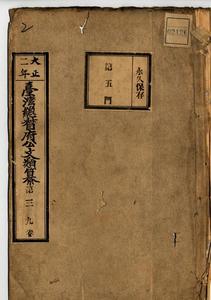 2
永久保存
第五門
大正二年
臺灣總督府公文類纂
第三九卷